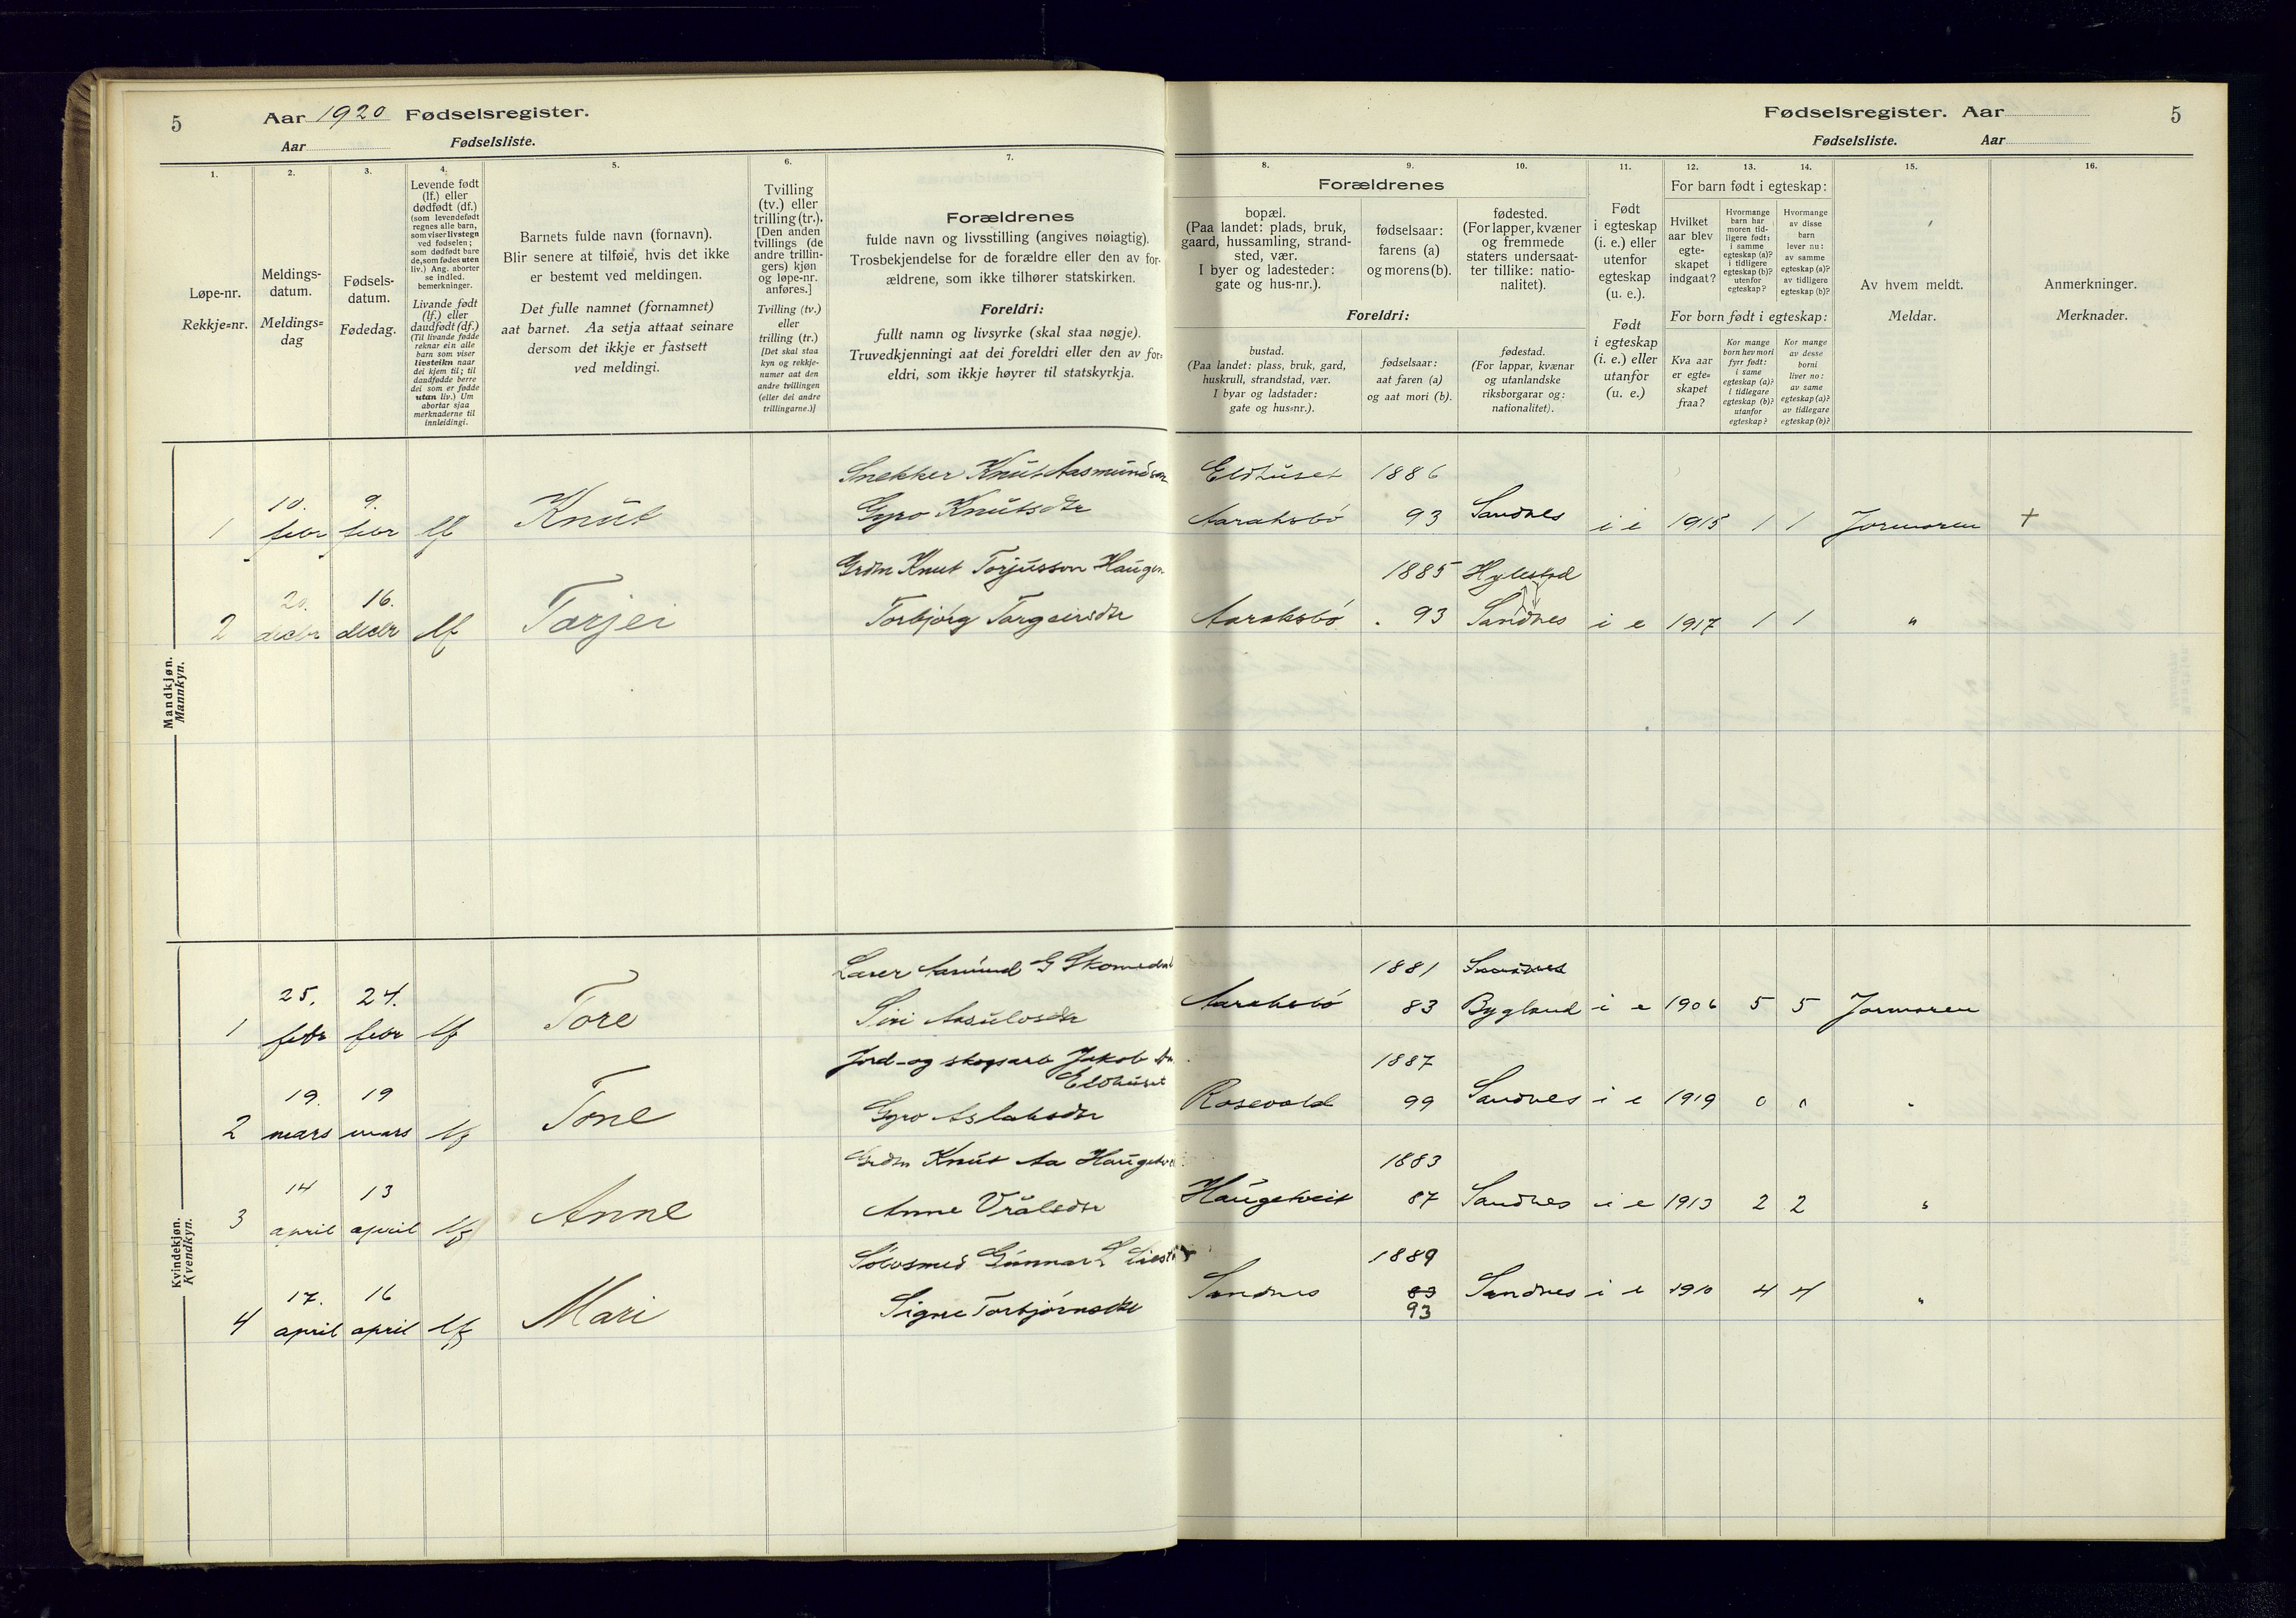 5
Aar 1920 Fødselsregister.
Aar Fødselsliste.
1.
2.
3.
4.
5.
6.
7.
Løpe-nr.
Rekkje=nr.
Meldings-
datum.
Meldings=
dag
Fødsels-
datum.
Fødedag.
Levende født
(lf.) eller
dødfødt (df.)
(som levendefødt
regnes alle barn,
som viser livstegn
ved fødselen;
som dødfødt bare
de, som fødes uten
liv.) Ang. aborter
se indled.
bemerkninger.
Livande født
(lf.) eller
daudfødt (df.)
(Til livande fødde
reknar ein alle
barn som viser
livsteikn naar
dei kjem til; til
daudfødde berre
dei som er fødde
utan liv.) Um
abortar sjaa
merknaderne til
innleidingi.
Barnets fulde navn (fornavn).
Blir senere at tilføie, hvis det ikke
er bestemt ved meldingen.
Det fulle namnet (fornamnet)
aat barnet. Aa setja attaat seinare
dersom det ikkje er fastsett
ved meldingi.
Tvilling
(tv.) eller
trilling (tr.).
[Den anden
tvillings (de
andre trillin-
gers) kjøn
og løpe-nr.
anføres.]
Tvilling (tv.)
eller
trilling (tr.)
[Det skal staa
kyn og rekkje-
numer aat den
andre tvillingen
(eller dei andre
trillingarne.)]
Forældrenes
fulde navn og livsstilling (angives nøiagtig).
Trosbekjendelse for de forældre eller den av for-
ældrene, som ikke tilhører statskirken.
Foreldri:
fullt namn og livsyrke (skal staa nøgje).
Truvedkjenningi aat dei foreldri eller den av for-
eldri, som ikkje høyrer til statskyrkja.
Mandkjøn.
Mannkyn.
Snekker Knut Aasmundson
1 10. febr 9. febr lf Knut Gyro Knutsdtr
Grdm Knut Torjusson Haugen
2 20. decbr 16. decbr lf Tarjei Torbjörg Targeirsdtr
Kvindekjøn.
Kvendkyn.
Aasmund G Skomedal
1 25. febr 24. febr lf Tore Siri Aasulvsdtr
Jord-og skogsarb Jakob
Eldhuset
2 19. mars 19 mars lf Tone Gyro Aslaksdtr
Grdm Knut Aa Haugetveit
3 14 april 13 april lf Anne Anne Vraalsdtr
Sølvsmed Gunnar
4 17. april 16 april lf Mari Signe Torbjörnsdtr
Fødselsregister. Aar 5
Fødselsliste. Aar
8.
9.
10.
11.
12.
13.
14.
15.
16.
Forældrenes
bopæl.
(Paa landet: plads, bruk,
gaard, hussamling, strand-
sted, vær.
I byer og ladesteder:
gate og hus-nr.).
fødselsaar:
farens (a)
og morens (b).
fødested.
(For lapper, kvæner
og fremmede
staters undersaat-
ter tillike: natio-
nalitet).
Foreldri:
bustad.
(Paa landet: plass, bruk, gard,
huskrull, strandstad, vær.
I byar og ladstader:
gate og hus=nr.).
fødselsaar:
aat faren (a)
og aat mori (b).
fødestad.
(For lappar, kvænar
og utanlandske
riksborgarar og:
nationalitet).
Født
i egteskap
(i. e.) eller
utenfor
egteskap
(u. e.).
Født
i egteskap
(i. e.) eller
utanfor
(u. e.)
For barn født i egteskap:
Hvilket
aar blev
egte-
skapet
indgaat?
Hvormange
barn har
moren tid-
ligere født:
i samme
egteskap (a)?
i tidligere
egteskap (b)?
utenfor
egteskap?
Hvormange
av disse
barn
lever nu:
av samme
egteskap (a)?
av tidligere
egteskap (b)?
For born født i egteskap:
Kva aar
er egte=
skapet
fraa?
Kor mange
born hev mori
fyrr født:
i same
egteskap (a)?
i tidlegare
egteskap (b)?
utanfor
egteskap?
Kor mange
av desse
borni
liver no:
av same
egteskap (a)?
av tidlegare
egteskap (b)?
Av hvem meldt.
Meldar.
Anmerkninger.
Merknader.
Eldhuset 1886
Aaraksbö 93 Sandnes i e 1915 1 1 Jormoren +
1885 Hylestad
Aaraksbö 93 Sandnes i e 1917 1 1 "
1881 Sandnes
Aaraksbö 83 Bygland i e 1906 5 5 Jormoren
1887
Rosevold 99 Sandnes i e 1919 0 0 "
1883
Haugetveit 87 Sandnes i e 1913 2 2 "
1889
Sandnes 83 Sandnes i e 1910 4 4 "
93